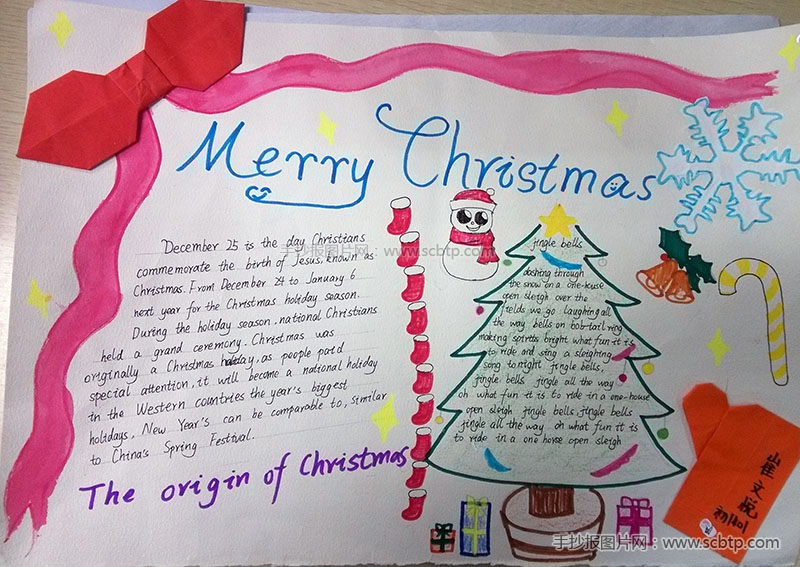 Merry Christmas
December 25 is the day Christians
commemorate the birth of Jesus, known as
Christmas. From December 24 to January 6
next year for the Christmas holiday season.
During the holiday season, national Christians
held a grand ceremony. Christmas was
originally a Christmas holiday, as people paid
special attention, it will become a national holiday
in the Western countries the year's biggest
holidays, New Year's can be comparable to, similar
to China's Spring Festival.
The origin of Christmas
jingle bells
dashing through
the snow in a one-house
open sleigh over the
fields we go laughing all
the way bells on bob-tail ring
making spirits bright what fun it is
to ride and sing a sleighing
song to night jingle bells,
jingle bells jingle all the way
oh what fun it is to ride in a one-house
open sleigh jingle bells, jingle bells
jingle all the way oh what fun it is
to ride in a one horse open sleigh
崔文悦
初1401
手抄报图片网：www.scbtp.com
手抄报图片网：www.scbtp.com